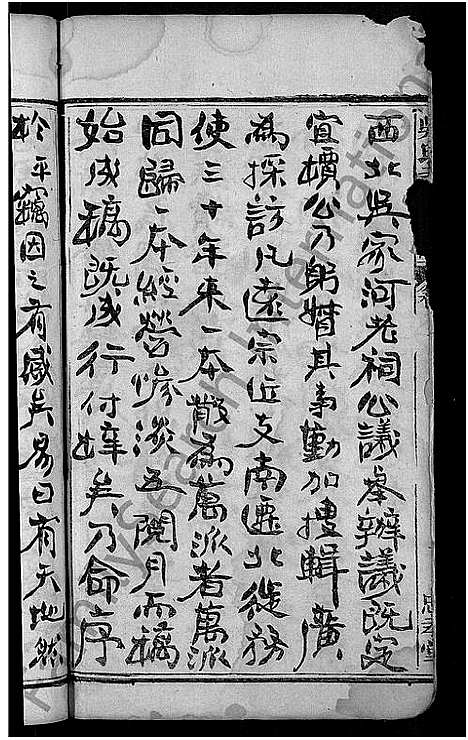 西北吳家河老祠公議舉辦議既定
宜櫝公乃躬膺其事勤加搜輯廣
為採訪凡遠宗近支南遷北徙務
使三十年來一本散為萬派者萬派
同歸一本經營慘淡五閱月而稿
始成稿既成行付梓矣乃命序
於平寢因之有感矣易曰有天地然